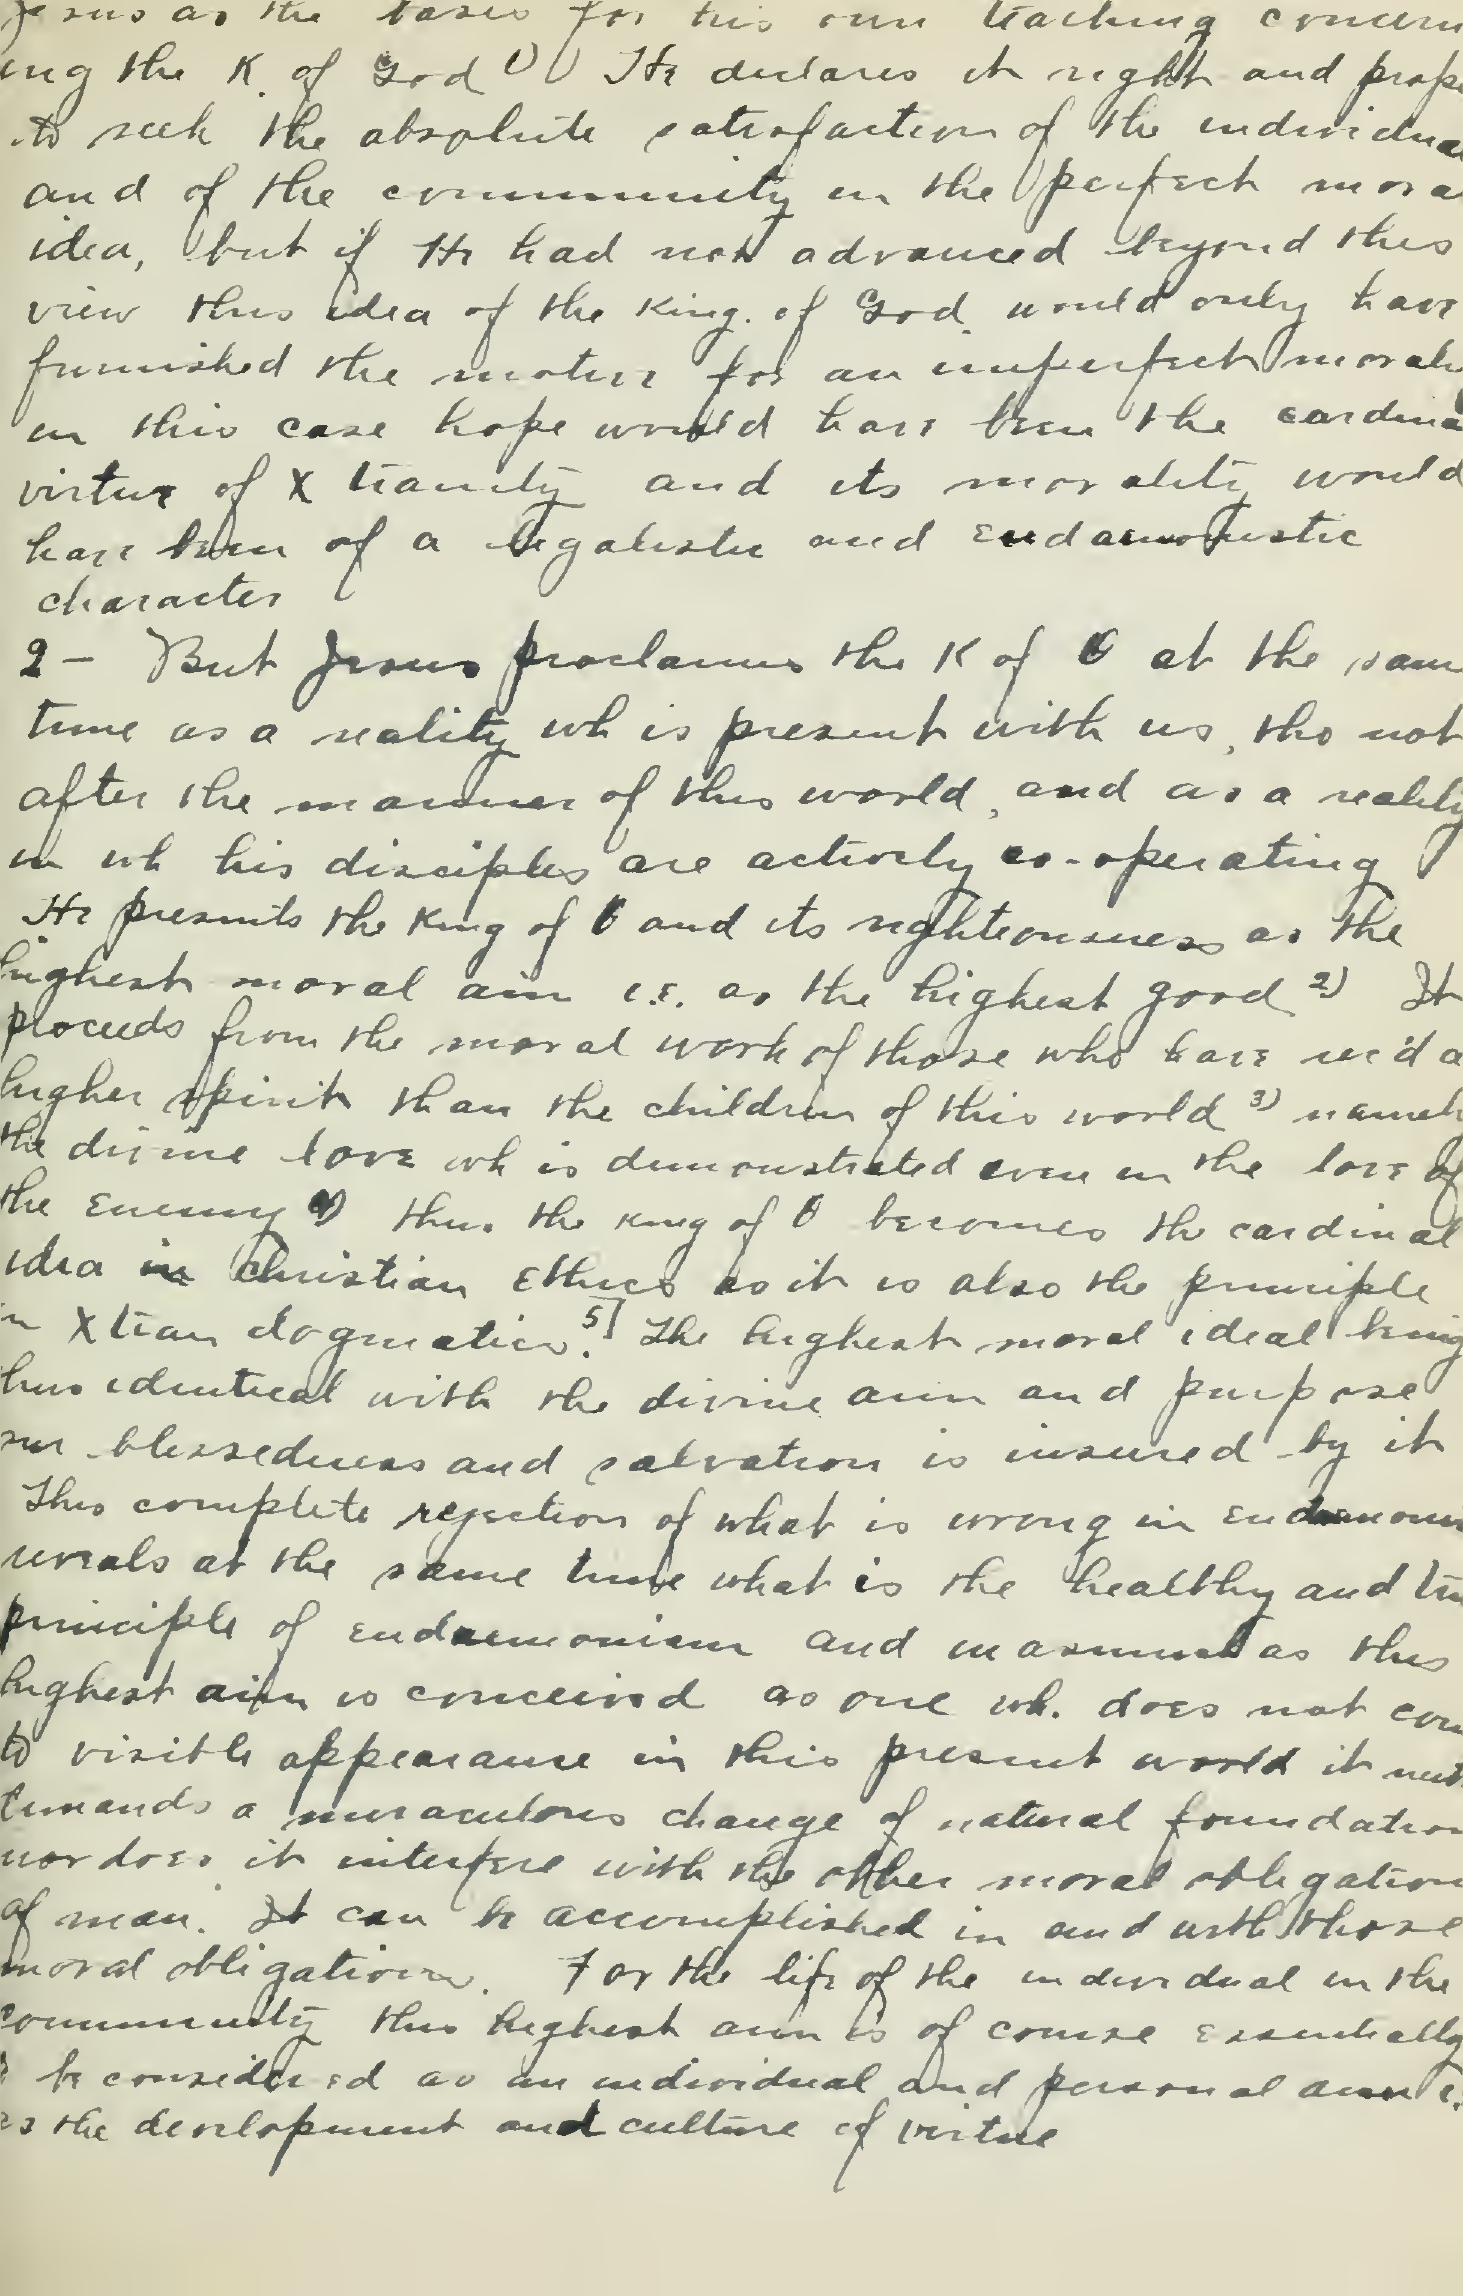 Jesus as the bases for his own teaching concern
ing the K. of God 1) He declares it right and prope
to seek the absolute satisfaction of the individua
and of the community in the perfect mora
idea, but if He had not advanced beyond this
view this idea of the King. of God would only have
furnished the motive for an imperfect morali
in this case hope would have been the cardina
virtue of X tianity and its morality would
have been of a legalistic and Eudaemonistic
character
2 - But Jesus proclaims the K of θ at the same
time as a reality wh is present with us, tho not
after the manner of this world, and as a reality
in wh his disciples are actively co-operating
He presents the King of θ and its righteousness as the
highest moral aim i.e. as the highest good 2) It
proceeds from the moral work of those who have rec'd a
higher spirit than the children of this world 3) namely
the divine love wh is demonstrated even in the love of
the Enemy 4) thus the King of θ becomes the cardinal
idea in christian Ethics as it is also the principle
in Xtian dogmatics. 5) The highest moral ideal being
thus identical with the divine aim and purpose
our blessedness and salvation is insured by it
This complete rejection of what is wrong in Eudaemonis
reveals at the same time what is the healthy and tru
principle of eudaemonism and inasmuch as this
highest aim is conceived as one wh. does not com
to visible appearance in this present world it neit
demands a miraculous change of natural foundation
nor does it interfere with the other moral obligation
of man. It can be accomplished in and with those
moral obligations. For the life of the individual in the
community this highest aim is of course essentially
be considered as an individual and personal aim i.
as the development and culture of virtue